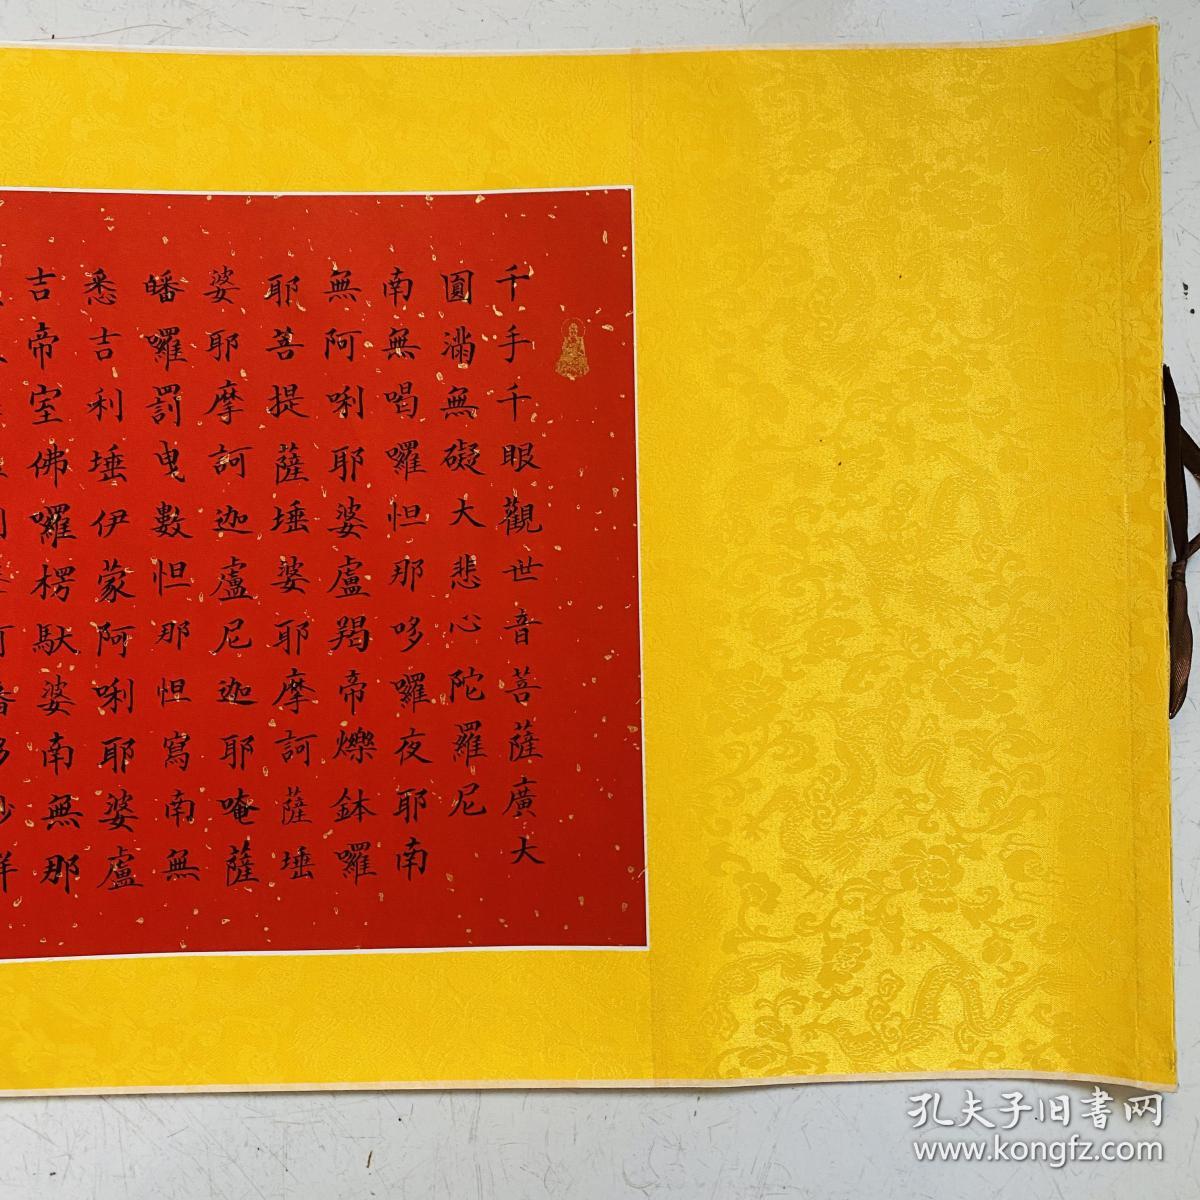 千手千眼觀世音菩薩廣大
圓滿無礙大悲心陀羅尼
南無喝囉怛那哆囉夜耶南
無阿唎耶婆盧羯帝爍鉢囉
耶菩提薩埵婆耶摩訶薩埵
婆耶摩訶迦盧尼迦耶唵薩
皤囉罰曳數怛那怛寫南無
悉吉利埵伊蒙阿唎耶婆盧
吉帝室佛囉楞馱婆南無那
孔夫子旧书网
www.kongfz.com